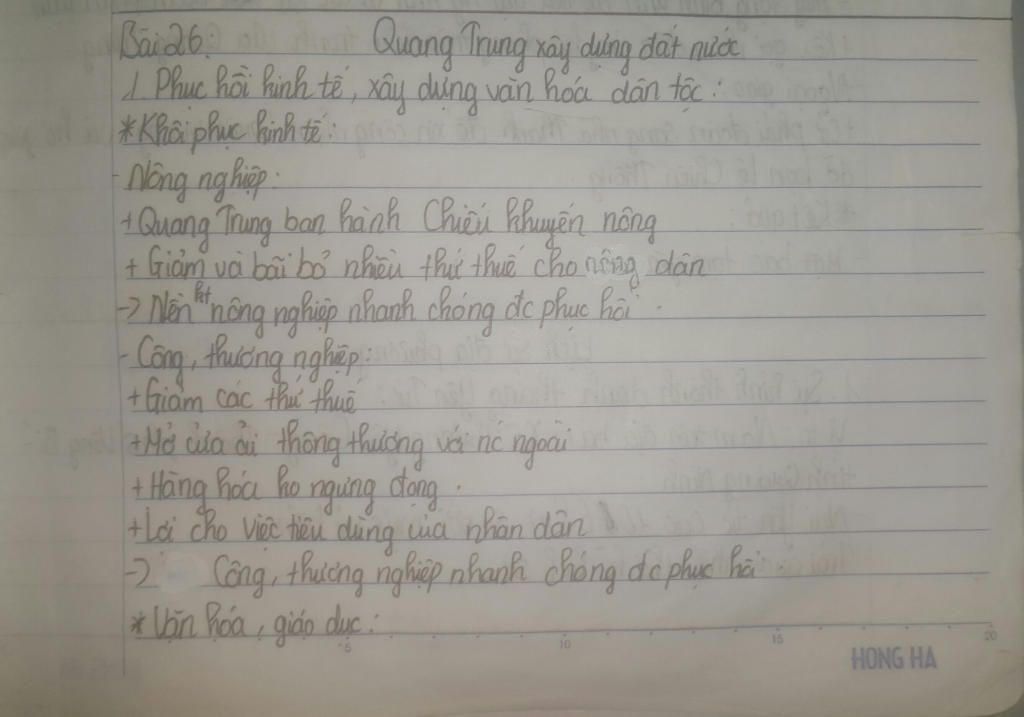 Bài 26: Quang Trung xây dựng đất nước
1. Phục hồi kinh tế, xây dựng văn hóa dân tộc:
*Khôi phục kinh tế:
- Nông nghiệp:
+ Quang Trung ban hành Chiếu khuyến nông
+ Giảm và bãi bỏ nhiều thứ thuế cho nông dân
-> Nền kt nông nghiệp nhanh chóng đc phục hồi.
- Công, thương nghiệp:
+ Giảm các thứ thuế
+ Mở cửa ải thông thương với nc ngoài
+ Hàng hóa ko ngưng đọng.
+ Lợi cho việc tiêu dùng của nhân dân
-> Công, thương nghiệp nhanh chóng đc phục hồi
* Văn hóa, giáo dục:
5 10 15 20
HONG HA